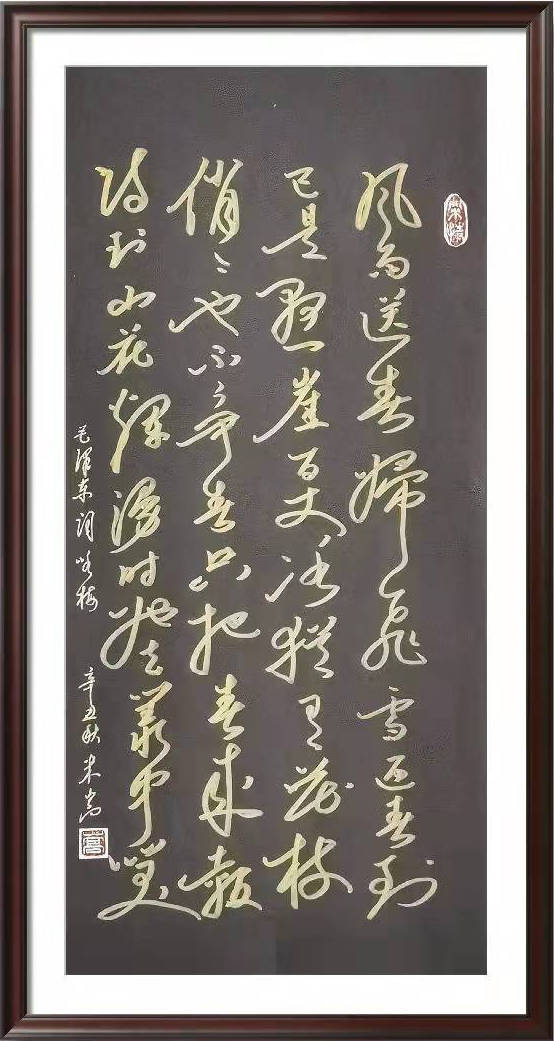 风雨送春歸飞雪迎春到
已是悬崖百丈冰猶有花枝
俏〻也不争春只把春来報
待到山花爛漫时她在叢中笑
毛泽东词咏梅
辛丑秋